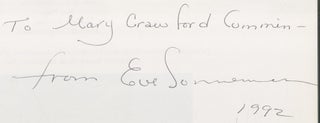 To Mary Crawford Cummin–
from Eve Sonneman
1992